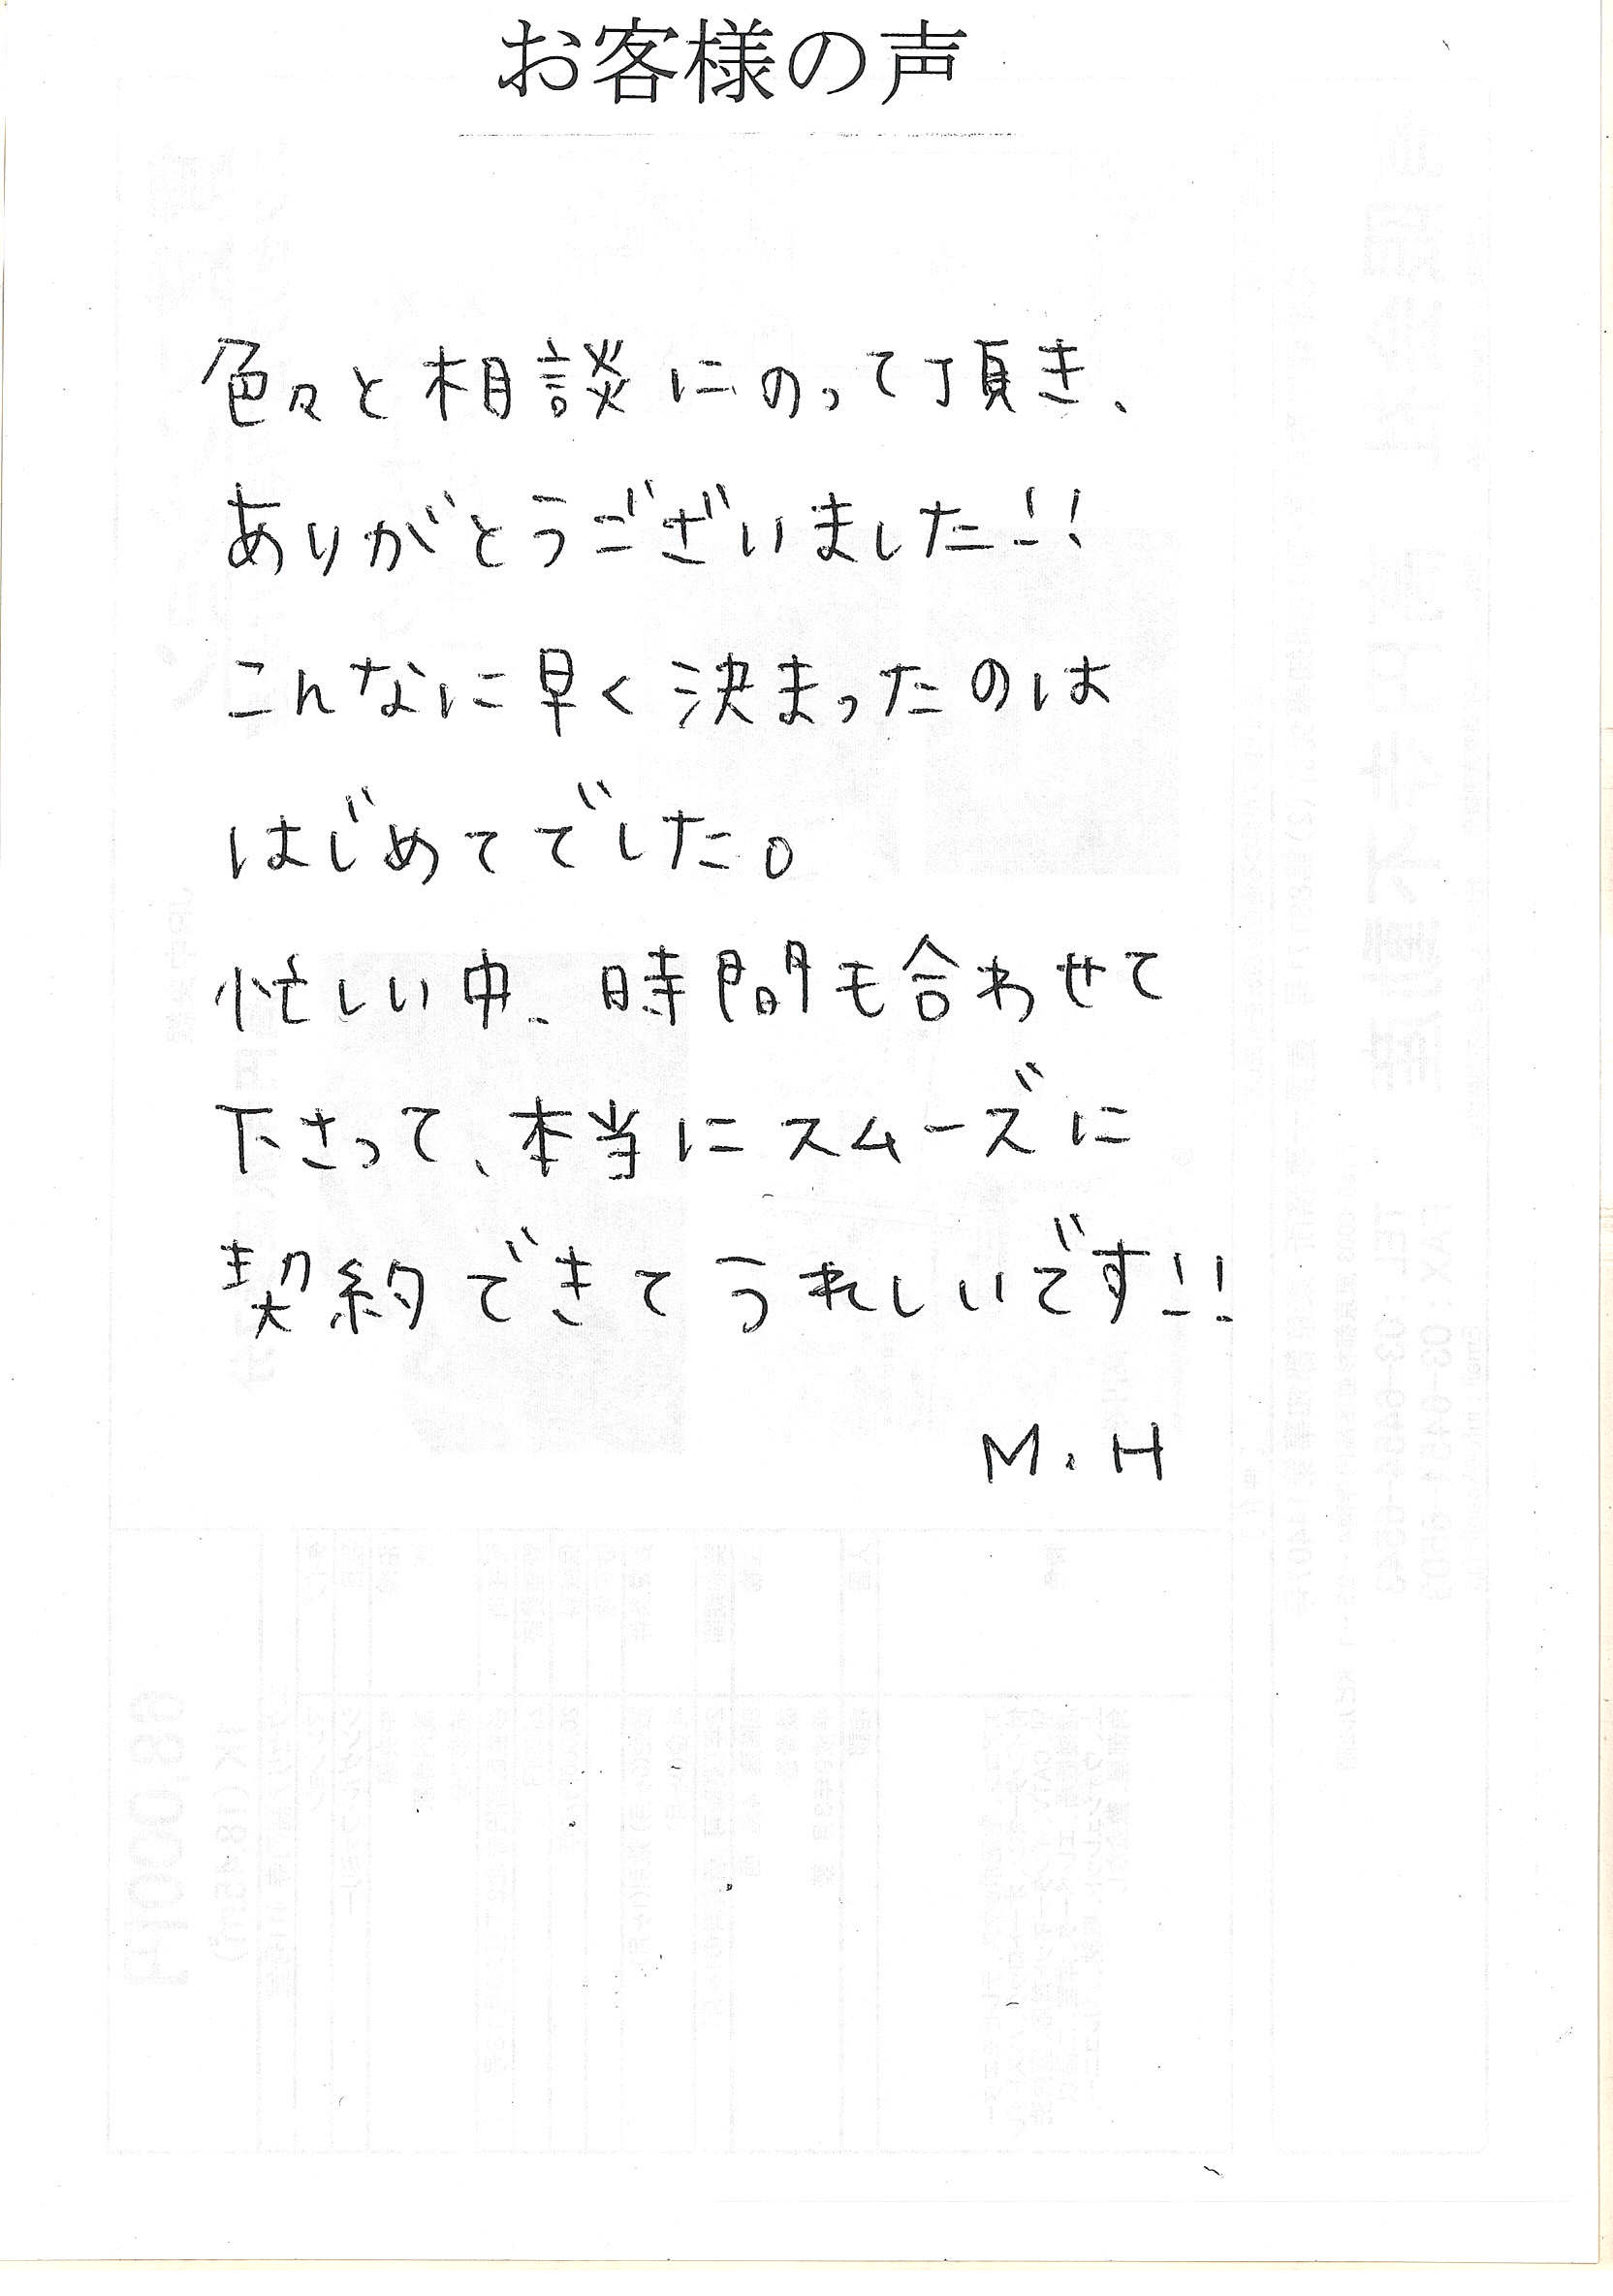 お客様の声
色々と相談にのって頂き、
ありがとうございました!!
こんなに早く決まったのは
はじめてでした。
忙しい中、時間も合わせて
下さって、本当にスムーズに
契約できてうれしいです!!
M.H